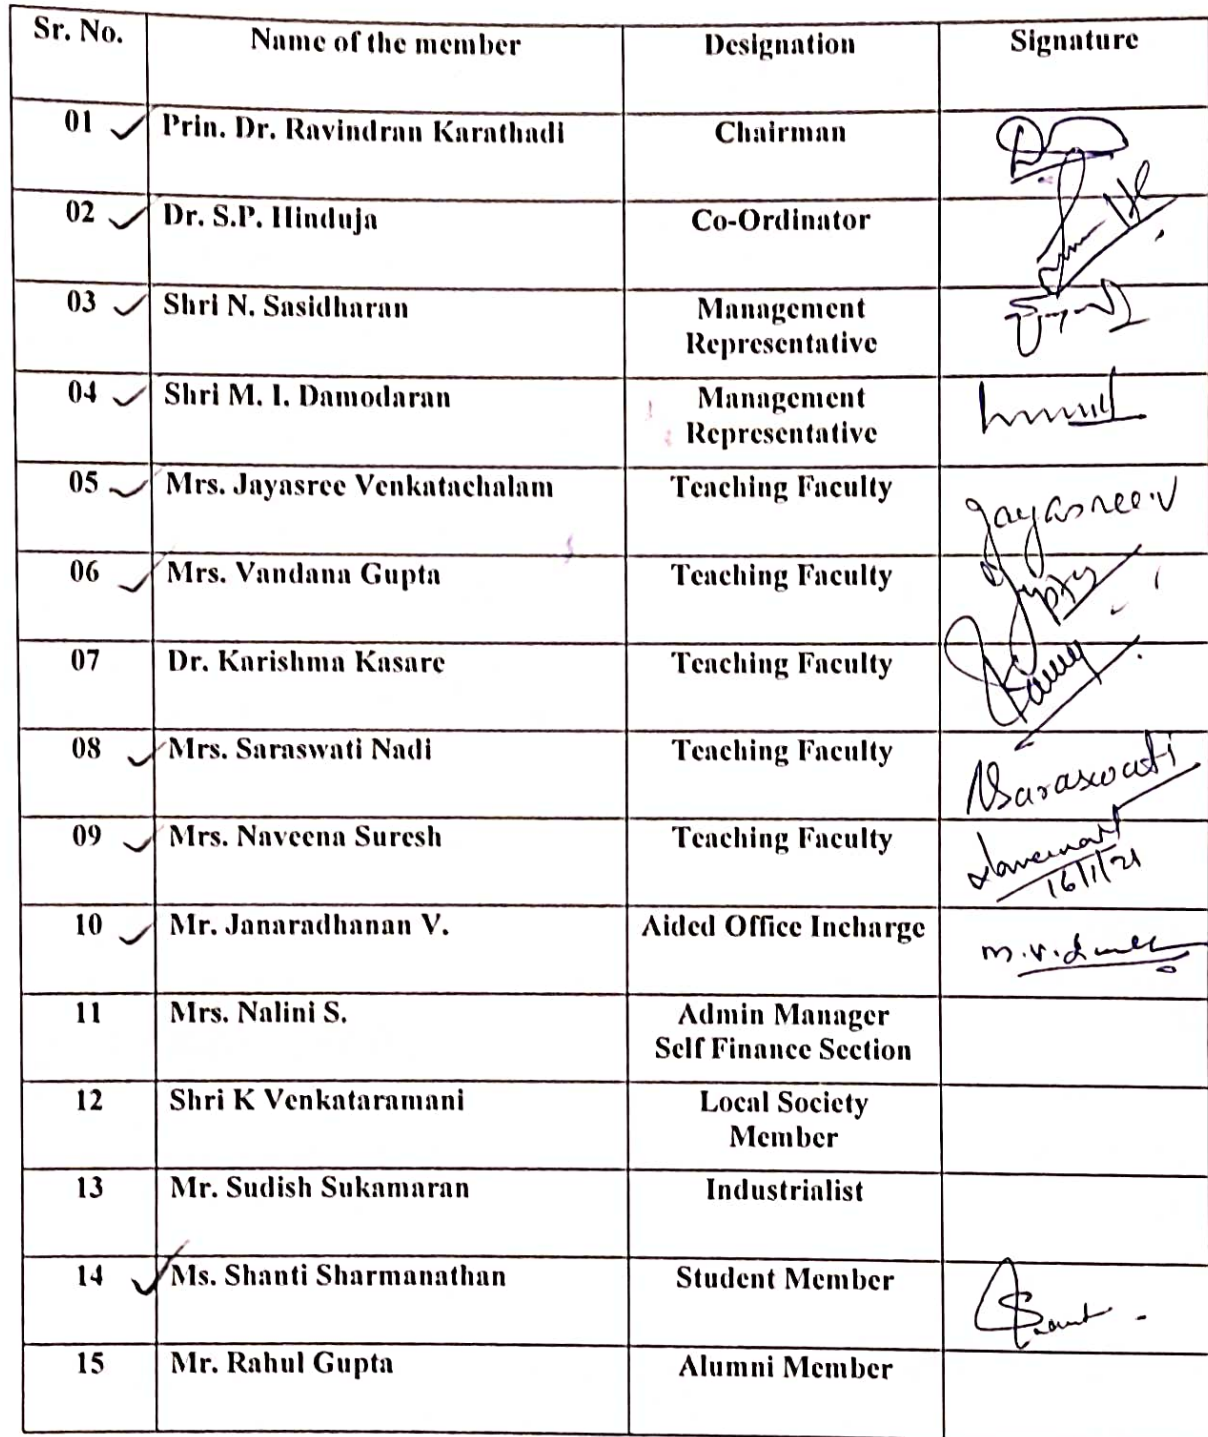 Sr. No. Name of the member Designation Signature
01 Prin. Dr. Ravindran Karathadi Chairman
02 Dr. S.P. Hinduja Co-Ordinator
03 Shri N. Sasidharan Management
Representative
04 Shri M. I. Damodaran Management
Representative
05 Mrs. Jayasree Venkatachalam Teaching Faculty Jayasree.V
06 Mrs. Vandana Gupta Teaching Faculty Gupta
07 Dr. Karishma Kasare Teaching Faculty
08 Mrs. Saraswati Nadi Teaching Faculty NSaraswati
09 Mrs. Naveena Suresh Teaching Faculty
16/1/21
10 Mr. Janaradhanan V. Aided Office Incharge
11 Mrs. Nalini S. Admin Manager
Self Finance Section
12 Shri K Venkataramani Local Society
Member
13 Mr. Sudish Sukamaran Industrialist
14 Ms. Shanti Sharmanathan Student Member
15 Mr. Rahul Gupta Alumni Member